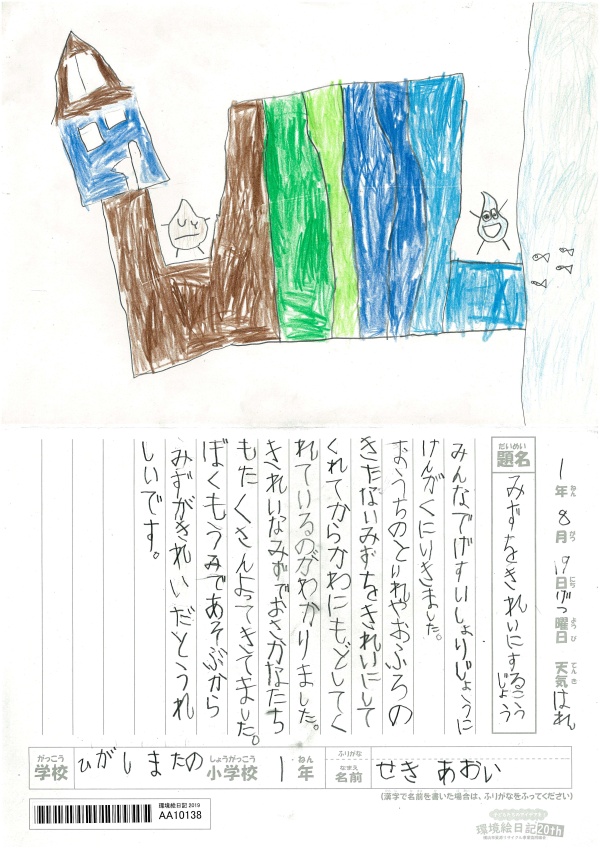 1年ねん 8月がつ 19日にち げつ曜日ようび 天気てんき はれ
だいめい
題名
みずをきれいにするこうじょう
みんなでげすいしょりじょうに
けんがくにいきました。
おうちのといれやおふろの
きたないみずをきれいにして
くれてからかわにもどしてく
れているのがわかりました。
きれいなみずでおさかなたち
もたくさんよってきてました。
ぼくもうみであそぶから
みずがきれいだとうれ
しいです。
がっこう
学校
ひがしまたの
しょうがっこう
小学校
1
ねん
年
ふりがな
なまえ
名前
せき あおい
(漢字で名前を書いた場合は、ふりがなをふってください)
環境絵日記 2019
AA10138
環境絵日記20th